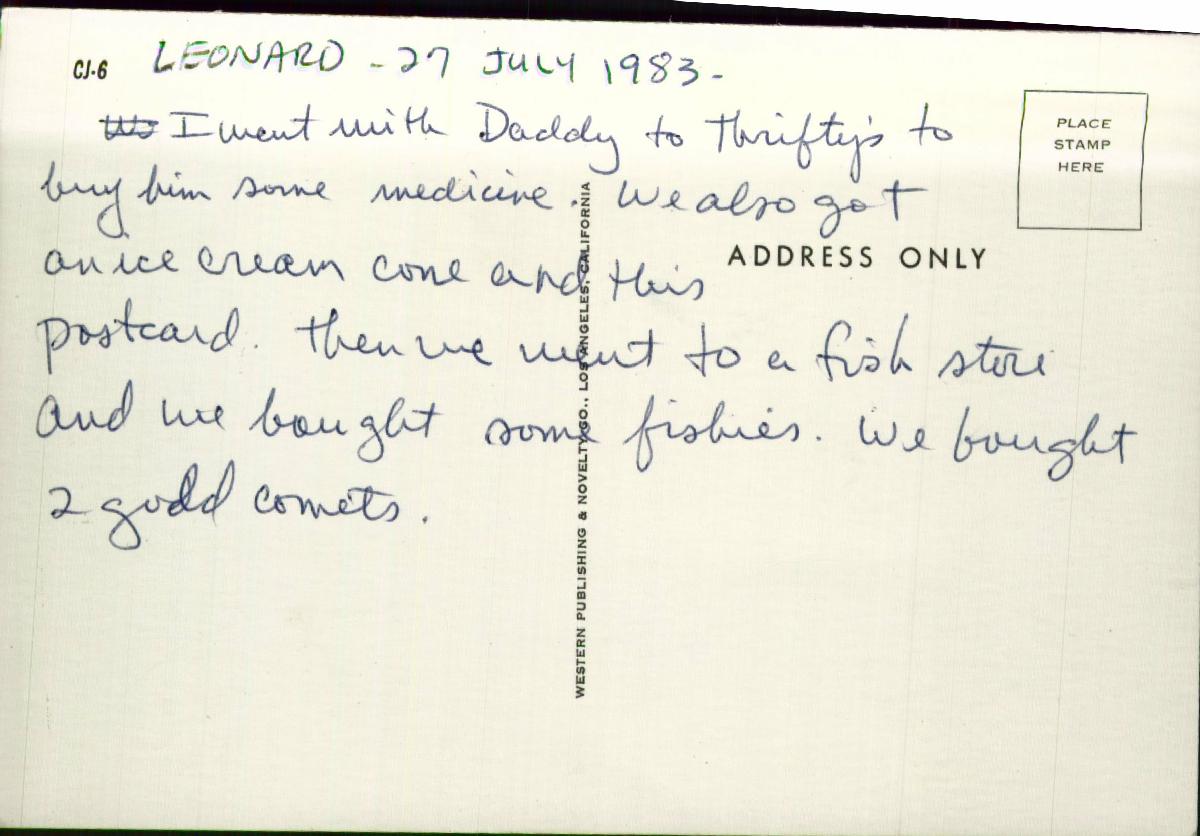 CJ-6 LEONARD - 27 JULY 1983 -
I went with Daddy to Thrifty's to
buy him some medicine. We also got
an ice cream cone and this
postcard. Then we went to a fish store
and we bought some fishies. We bought
2 gold comets.
PLACE
STAMP
HERE
ADDRESS ONLY
WESTERN PUBLISHING & NOVELTY CO., LOS ANGELES, CALIFORNIA